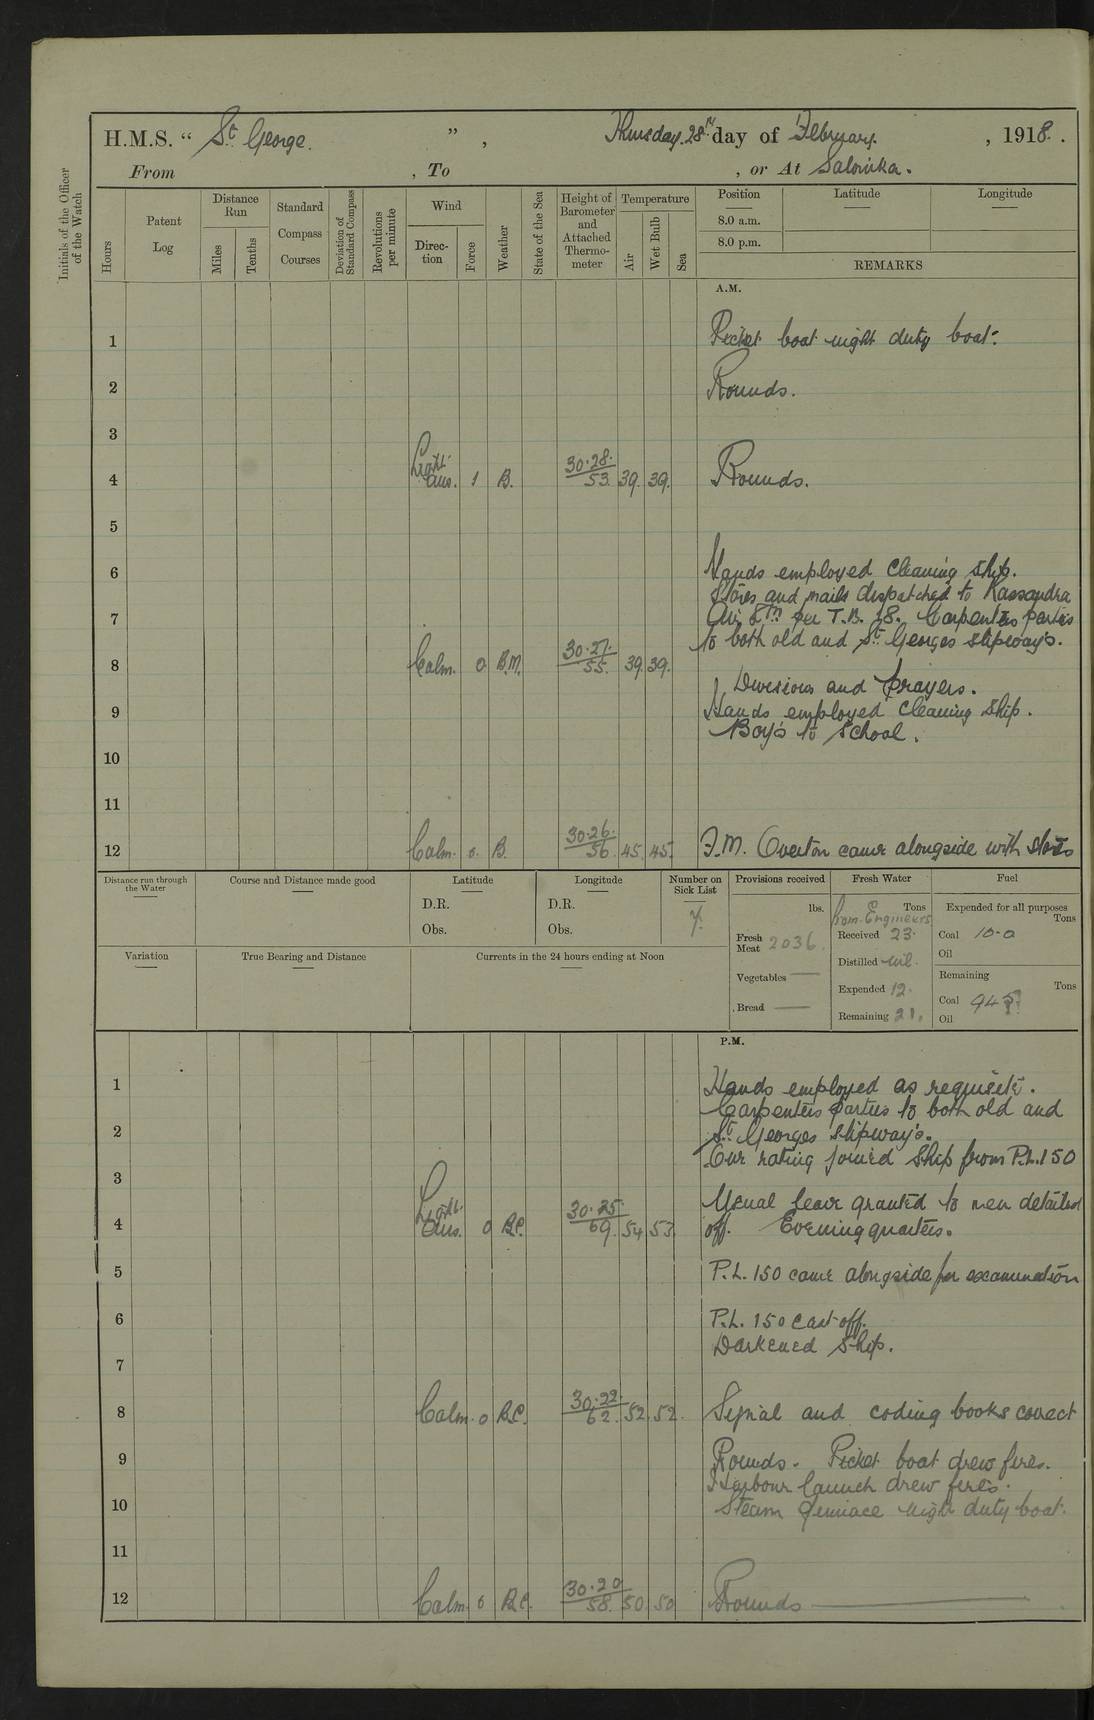 H.M.S. “ St George. ”, Thursday. 28th day of February. , 1918.
From , To , or At Salonika.
Initials of the Officer of the Watch
Hours
Patent Log
Distance Run
Miles
Tenths
Standard Compass Courses
Deviation of Standard Compass
Revolutions per minute
Wind
Direc-tion
Force
Weather
State of the Sea
Height of Barometer and Attached Thermo-meter
Temperature
Air
Wet Bulb
Sea
Position
Latitude
Longitude
8.0 a.m.
8.0 p.m.
REMARKS
A.M.
1 Picket boat night duty boat.
2 Rounds.
3
4 Light airs. 1 B. 30.28. 53. 39. 39. Rounds.
5
6 Hands employed cleaning ship.
Stores and mails dispatched to Kassandra
7 Air Stn per T.B. 78. Carpenters parties
to both old and St Georges slipway's.
8 Calm. 0 B.M. 30.27. 55. 39. 39.
Divisions and prayers.
9 Hands employed cleaning ship.
Boy's to school.
10
11
12 Calm. 0. B. 30.26. 56. 45. 45. F.M. Overton came alongside with stores
Distance run through the Water
Course and Distance made good
Latitude
D.R.
Obs.
Longitude
D.R.
Obs.
Number on Sick List
7.
Provisions received
lbs.
Fresh Meat 2036.
Vegetables —
Bread —
Fresh Water
Tons
From Engineers
Received 23.
Distilled nil.
Expended 12.
Remaining 21.
Fuel
Expended for all purposes
Tons
Coal 10.0
Oil
Remaining
Tons
Coal
Oil
Variation
True Bearing and Distance
Currents in the 24 hours ending at Noon
P.M.
1 Hands employed as requisite.
Carpenters parties to both old and
2 St Georges slipway's.
One rating joined ship from P.L.150
3
Usual leave granted to men detailed
4 Light Airs. 0 B.C. 30.25. 69. 54 53. off. Evening quarters.
5 P.L. 150 came alongside for examination
6 P.L. 150 cast off.
Darkened ship.
7
8 Calm. 0 B.C. 30.22. 62. 52. 52. Signal and coding books correct
9 Rounds. Picket boat drew fires.
Harbour launch drew fires.
10 Steam pinnace night duty boat.
11
12 Calm. 0 B.C. 30.20 58. 50. 50 Rounds